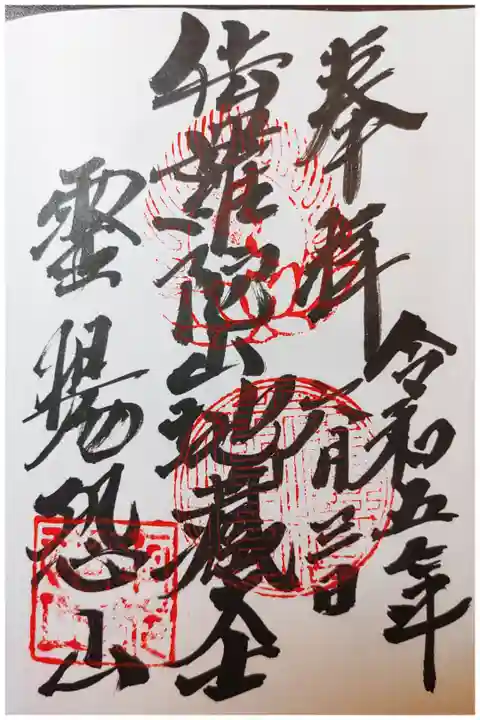 奉拝
令和五年
六月三日
伽羅陀山地蔵尊
霊場恐山